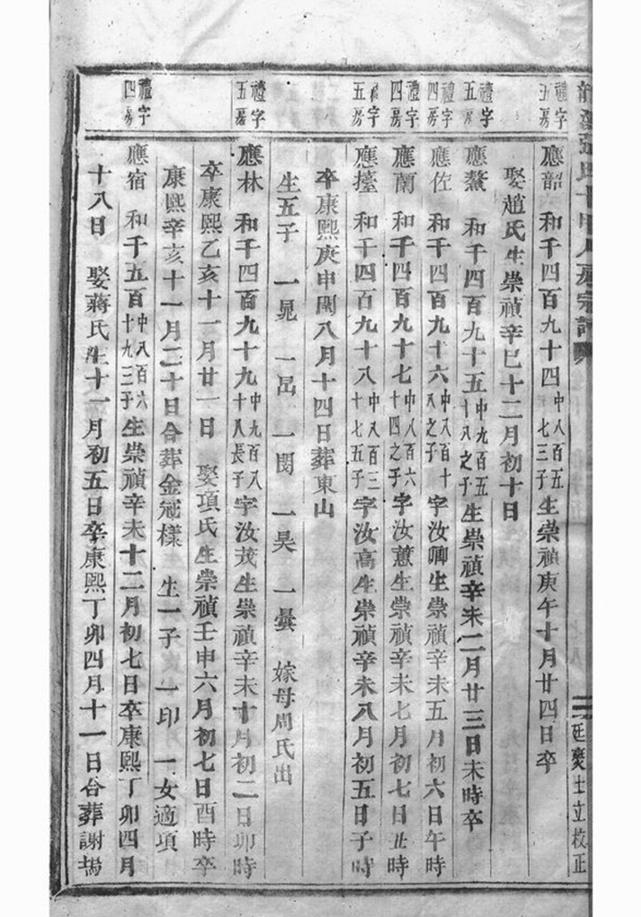 張氏
宗譜
廷慶士立校正
禮字五房
應韶 和千四百九十四 中八百五七三子 生崇禎庚午十月廿四日卒
娶趙氏生崇禎辛巳十二月初十日
禮字五房
應鰲 和千四百九十五 中九百五十八之子 生崇禎辛未二月廿三日未時卒
禮字四房
應佐 和千四百九十六 中八百十八之子 字汝卿生崇禎辛未五月初六日午時
禮字四房
應蘭 和千四百九十七 中八百六十四之子 字汝蕙生崇禎辛未七月初七日丑時
禮字五房
應擡 和千四百九十八 中八百三十七五子 字汝高生崇禎辛未八月初五日子時
卒康熙庚申閏八月十四日葬東山
生五子 一晁 一昂 一閔 一昊 一曇 嫁母周氏出
禮字五房
應林 和千四百九十九 中九百八十八長子 字汝茂生崇禎辛未十月初二日卯時
卒康熙乙亥十一月廿一日 娶項氏生崇禎壬申六月初七日酉時卒
康熙辛亥十一月二十日合葬金冠樣 生一子 一印 一女適項
禮字四房
應宿 和千五百 中八百六十九三子 生崇禎辛未十二月初七日卒康熙丁卯四月
十八日 娶蔣氏生十一月初五日卒康熙丁卯四月十一日合葬謝塢